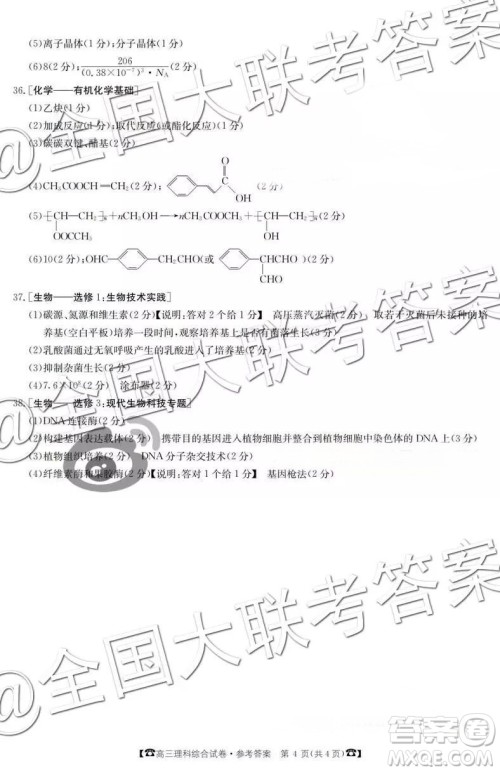 (5)离子晶体(1分);分子晶体(1分)
(6)8(2分);206/((0.38×10⁻⁷)³·N_A)(2分)
36.[化学——有机化学基础]
(1)乙炔(1分)
(2)加成反应(1分);取代反应(或酯化反应)(1分)
(3)碳碳双键、酯基(2分)
(4)CH₃COOCH=CH₂(2分);
O
OH
(2分)
(5)⁅CH—CH₂⁆ₙ+nCH₃OH→nCH₃COOCH₃+⁅CH—CH₂⁆ₙ(2分)
OOCCH₃ OH
(6)10(2分);OHC— —CH₂CHO(或 —CHCHO)(2分)
CHO
37.[生物——选修1:生物技术实践]
(1)碳源、氮源和维生素(2分)【说明:答对2个给1分】 高压蒸汽灭菌(2分) 取若干灭菌后未接种的培
养基(空白平板)培养一段时间,观察培养基上是否有菌落生长(3分)
(2)乳酸菌通过无氧呼吸产生的乳酸进入了培养基(2分)
(3)抑制杂菌生长(2分)
(4)7.6×10⁸(2分) 涂布器(2分)
38.[生物——选修3:现代生物科技专题]
(1)DNA连接酶(2分)
(2)构建基因表达载体(2分) 携带目的基因进入植物细胞并整合到植物细胞中染色体的DNA上(3分)
(3)植物组织培养(2分) DNA分子杂交技术(2分)
(4)纤维素酶和果胶酶(2分)【说明:答对1个给1分】 基因枪法(2分)
【☎高三理科综合试卷·参考答案 第4页(共4页)☎】
@全国大联考答案
@全国大联考答案